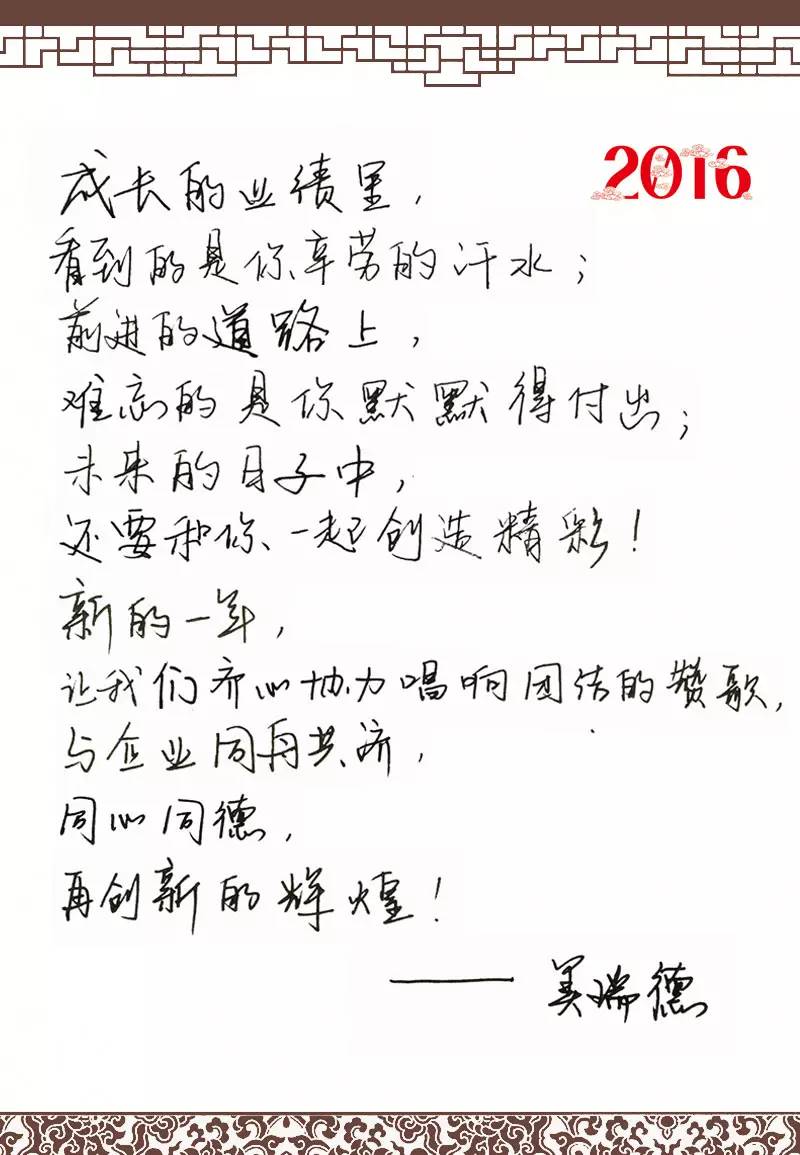 2016
成长的业绩里，
看到的是你辛劳的汗水；
前进的道路上，
难忘的是你默默得付出；
未来的日子中，
还要和你一起创造精彩！
新的一年，
让我们齐心协力唱响团结的赞歌，
与企业同舟共济，
同心同德，
再创新的辉煌！
——美瑞德